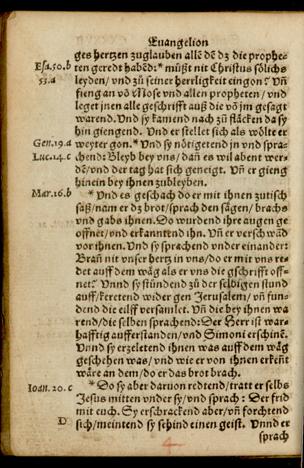 Euangelion
ges hertzen zuglauben allē dē dz die prophe-
Esa.50.b ten geredt habēd:* müßt nit Christus sölichs
53.a leyden/ vnd zů seiner herrligkeit eingon? Vñ
fieng an võ Mose vnd allen propheten/ vnd
leget jnen alle geschrifft auß die võ jm gesagt
warend. Vnd sy kamend nach zů fläcken da sy
hin giengend. Vnd er stellet sich als wölte er
Gen.19.a weyter gon.* Vnd sy nötigetend jn vnd spra-
Luc.24.c chend: Bleyb bey vns/ dañ es wil abent wer-
dē/ vnd der tag hat sich geneigt. Vñ er gieng
hinein bey ihnen zubleyben.
Mar.16.b * Vnd es geschach do er mit ihnen zutisch
saß/ nam er dz brot/ sprach den sägen/ brachs
vnd gabs ihnen. Do wurdend ihre augen ge
öffnet/ vnd erkanntend ihn. Vñ er verschwäd
vor ihnen. Vnd sy sprachend vnder einander:
Brañ nit vnser hertz in vns/ do er mit vns re-
det auff dem wäg als er vns die gschrifft off-
net? Vnnd sy stůndend zů der selbigen stund
auff/ keretend wider gen Jerusalem/ vñ fun-
dend die eilff versamlet. Vñ die bey ihnen wa
rend/ die selben sprachend: Der Herr ist war-
hafftig aufferstanden/ vnd Simoni erschinē.
Vnnd sy erzeletend ihnen was auff dem wäg
geschehen was/ vnd wie er von ihnen erkeñt
wäre an dem/ do er das brot brach.
Ioan. 20. c * Do sy aber daruon redtend/ tratt er selbs
Jesus mitten vnder sy/ vnd sprach: Der frid
mit euch. Sy erschrackend aber/ vñ forchtend
D sich/ meintend sy sehind einen geist. Vnnd er
sprach
4